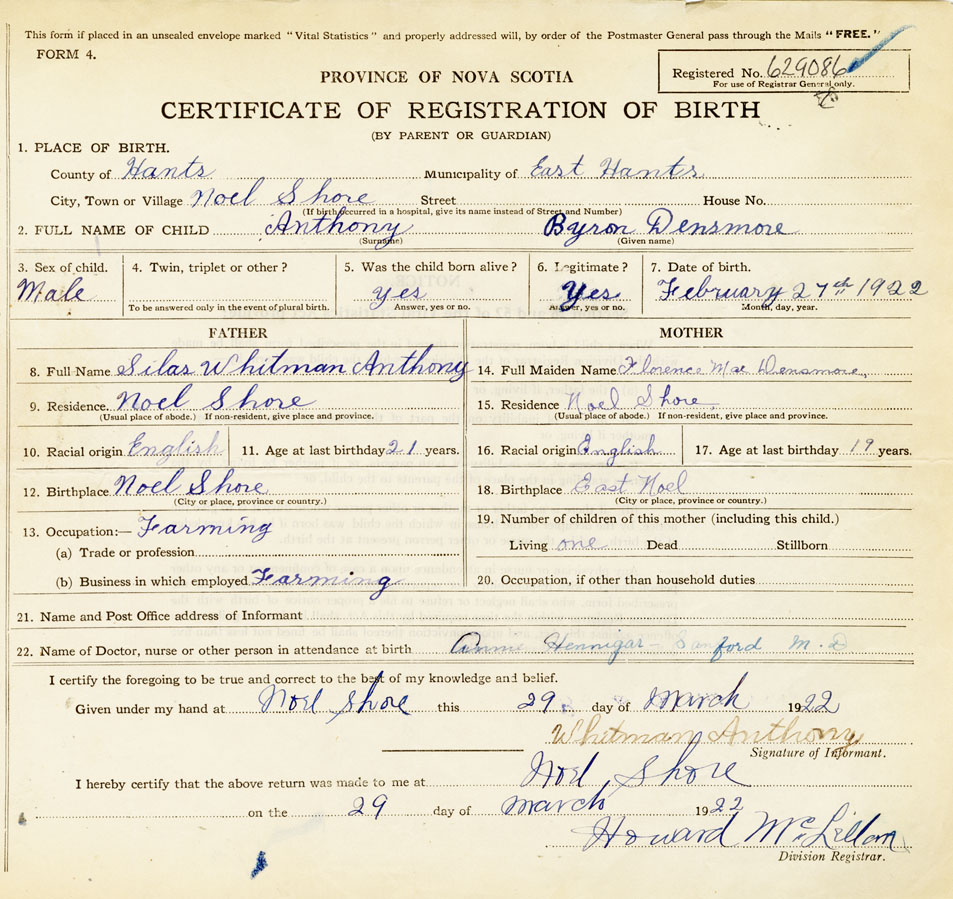 This form if placed in an unsealed envelope marked "Vital Statistics" and properly addressed will, by order of the Postmaster General pass through the Mails "FREE."
FORM 4.
Registered No. 629086
For use of Registrar General only.
PROVINCE OF NOVA SCOTIA
CERTIFICATE OF REGISTRATION OF BIRTH
(BY PARENT OR GUARDIAN)
1. PLACE OF BIRTH.
County of Hants Municipality of East Hants
City, Town or Village Noel Shore Street House No.
(If birth occurred in a hospital, give its name instead of Street and Number)
2. FULL NAME OF CHILD Anthony Byron Densmore
(Surname) (Given name)
3. Sex of child. 4. Twin, triplet or other? 5. Was the child born alive? 6. Legitimate? 7. Date of birth.
Male yes Yes February 27th 1922
To be answered only in the event of plural birth. Answer, yes or no. Answer, yes or no. Month, day, year.
FATHER MOTHER
8. Full Name Silas Whitman Anthony 14. Full Maiden Name Florence Mae Densmore,
9. Residence Noel Shore 15. Residence Noel Shore,
(Usual place of abode.) If non-resident, give place and province. (Usual place of abode.) If non-resident, give place and province.
10. Racial origin English 11. Age at last birthday 21 years. 16. Racial origin English 17. Age at last birthday 19 years.
12. Birthplace Noel Shore 18. Birthplace East Noel
(City or place, province or country.) (City or place, province or country.)
13. Occupation:— Farming 19. Number of children of this mother (including this child.)
(a) Trade or profession Living one Dead Stillborn
(b) Business in which employed Farming 20. Occupation, if other than household duties
21. Name and Post Office address of Informant
22. Name of Doctor, nurse or other person in attendance at birth Annie Hennigar - Sanford M.D
I certify the foregoing to be true and correct to the best of my knowledge and belief.
Given under my hand at Noel Shore this 29 day of March 1922
Whitman Anthony
Signature of Informant.
I hereby certify that the above return was made to me at Noel Shore
on the 29 day of March 1922
Howard McLellan
Division Registrar.